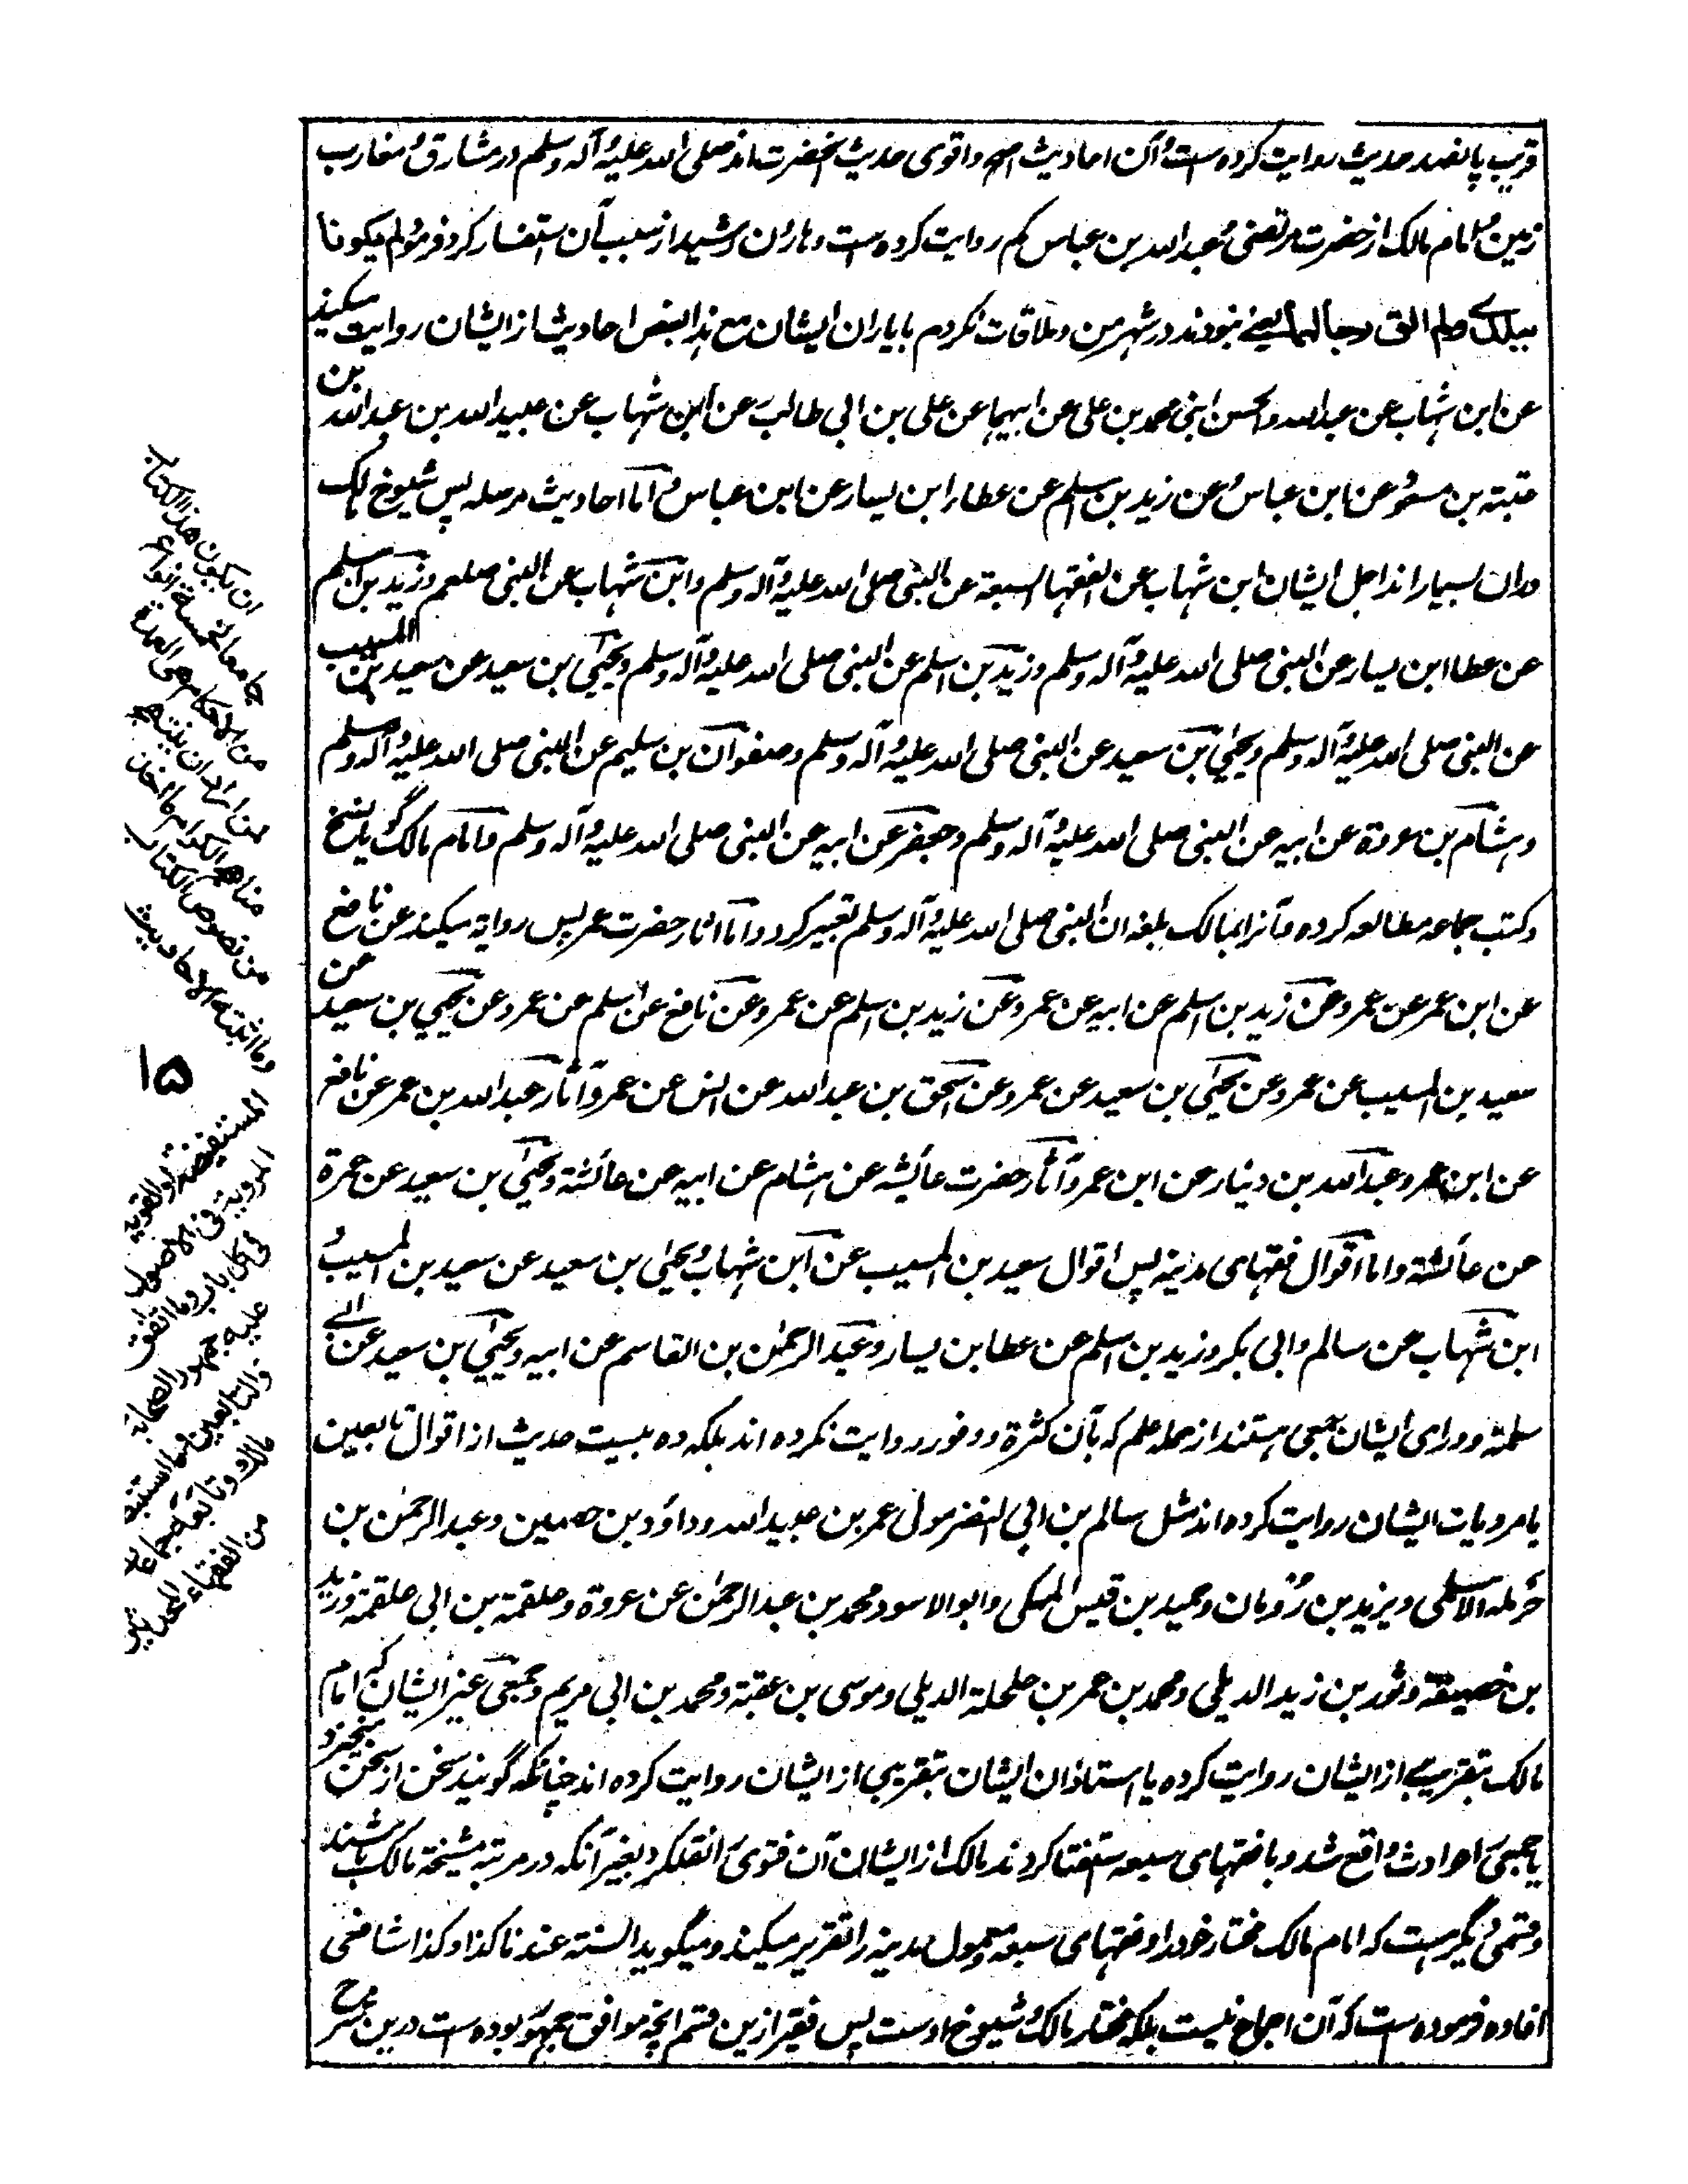 قریب پانصد حدیث روایت کرده است و آن احادیث اصح و اقوی حدیث آنحضرت اند صلی الله علیه و آله وسلم در مشارق و مغارب
زمین و امام مالک از حضرت مرتضی و عبدالله بن عباس کم روایت کرده است و هارون رشید از سبب آن استفسار کرد فرمود لم یکونا
ببلدی ولم الق رجالهما یعنی نبودند در شهر من و ملاقات نکردم با یاران ایشان مع هذا بعض احادیث از ایشان روایت میکند
عن ابن شهاب عن عبدالله والحسن ابنی محمد بن علی عن ابیهما عن علی بن ابی طالب عن ابن شهاب عن عبید الله بن عبدالله بن
عتبة بن مسعود عن ابن عباس و عن زید بن اسلم عن عطاء ابن یسار عن ابن عباس و اما احادیث مرسله پس شیوخ مالک
دران بسیار اند اجل ایشان ابن شهاب عن الفقهاء السبعة عن النبی صلی الله علیه و آله وسلم وابن شهاب عن النبی صلعم وزید بن اسلم
عن عطا ابن یسار عن النبی صلی الله علیه و آله وسلم وزید بن اسلم عن النبی صلی الله علیه و آله وسلم ویحیی بن سعید عن سعید بن المسیب
عن النبی صلی الله علیه و آله وسلم ویحیی بن سعید عن النبی صلی الله علیه و آله وسلم وصفوان بن سلیم عن النبی صلی الله علیه و آله وسلم
وهشام بن عروة عن ابیه عن النبی صلی الله علیه و آله وسلم وجعفر عن ابیه عن النبی صلی الله علیه و آله وسلم و امام مالک گویا نسخ
و کتب جماعه مطالعه کرده و آنرا بمالک بلغه ان النبی صلی الله علیه و آله وسلم تعبیر کرد و اما آثار حضرت عمر پس روایة میکند عن نافع
عن ابن عمر عن عمر وعن زید بن اسلم عن ابیه عن عمر وعن زید بن اسلم عن عمر وعن نافع عن اسلم عن عمر وعن یحیی بن سعید عن
سعید بن المسیب عن عمر وعن یحیی بن سعید عن عمر وعن اسحق بن عبدالله عن انس عن عمر و آثار عبدالله بن عمر عن نافع
عن ابن عمر وعبدالله بن دینار عن ابن عمر و آثار حضرت عائشه عن هشام عن ابیه عن عائشة ویحیی بن سعید عن عمرة
عن عائشة واما اقوال فقهای مدینه پس اقوال سعید بن المسیب عن ابن شهاب و یحیی بن سعید عن سعید بن المسیب و
ابن شهاب عن سالم وابی بکر وزید بن اسلم عن عطا بن یسار وعبد الرحمن بن القاسم عن ابیه ویحیی بن سعید عن ابی
سلمة و ورای ایشان جمعی هستند از حمله علم که بآن کثرة و وفور روایت نکرده اند بلکه ده بیست حدیث از اقوال تابعین
یا مرویات ایشان روایت کرده اند مثل سالم بن ابی النضر مولی عمر بن عبید الله وداؤد بن حصین وعبد الرحمن بن
حرمله الاسلمی ویزید بن رومان وحمید بن قیس المکی وابو الاسود محمد بن عبد الرحمن عن عروة وعلقمة بن ابی علقمة ویزید
بن خصیفة وثور بن زید الدیلی ومحمد بن عمر بن حلحلة الدیلی وموسی بن عقبة ومحمد بن ابی مریم وجمعی غیر ایشان که امام
مالک بتقریبی از ایشان روایت کرده یا استاذان ایشان بتقریبی از ایشان روایت کرده اند چنانکه گویند سخن از سخن میخیزد
یا جمیع حوادث واقع شد و با فقهای سبعه استفتا کردند مالک از ایشان آن فتوی را نقل کرد بغیر آنکه در مرتبه مشیخة مالک باشند
و قسمی دیگر هست که امام مالک مختار خود را و فقهای سبعه و معمول مدینه را تقریر میکند و میگوید السنة عندنا کذا وکذا شافعی
افاده فرموده است که آن اجماع نیست بلکه مختار مالک و شیوخ اوست پس فقیر ازین قسم آنچه موافق جمهور بوده است درین شرح
ان یکون هذا الکتاب
جامعا لخمسة انواع
من الاحکام هی العمدة
لمن اراد ان ینتهج
مناهج الکرام ما اخذ
من نصوص الکتاب
وما اثبته الاحادیث
۱۵
المستفیضة او القویة
المرویة فی الاصول
فی کل باب وما اتفق
علیه جمهور الصحابة
والتابعین وما استنبطه
مالک وتابعه جماعات
من الفقهاء المحدثین